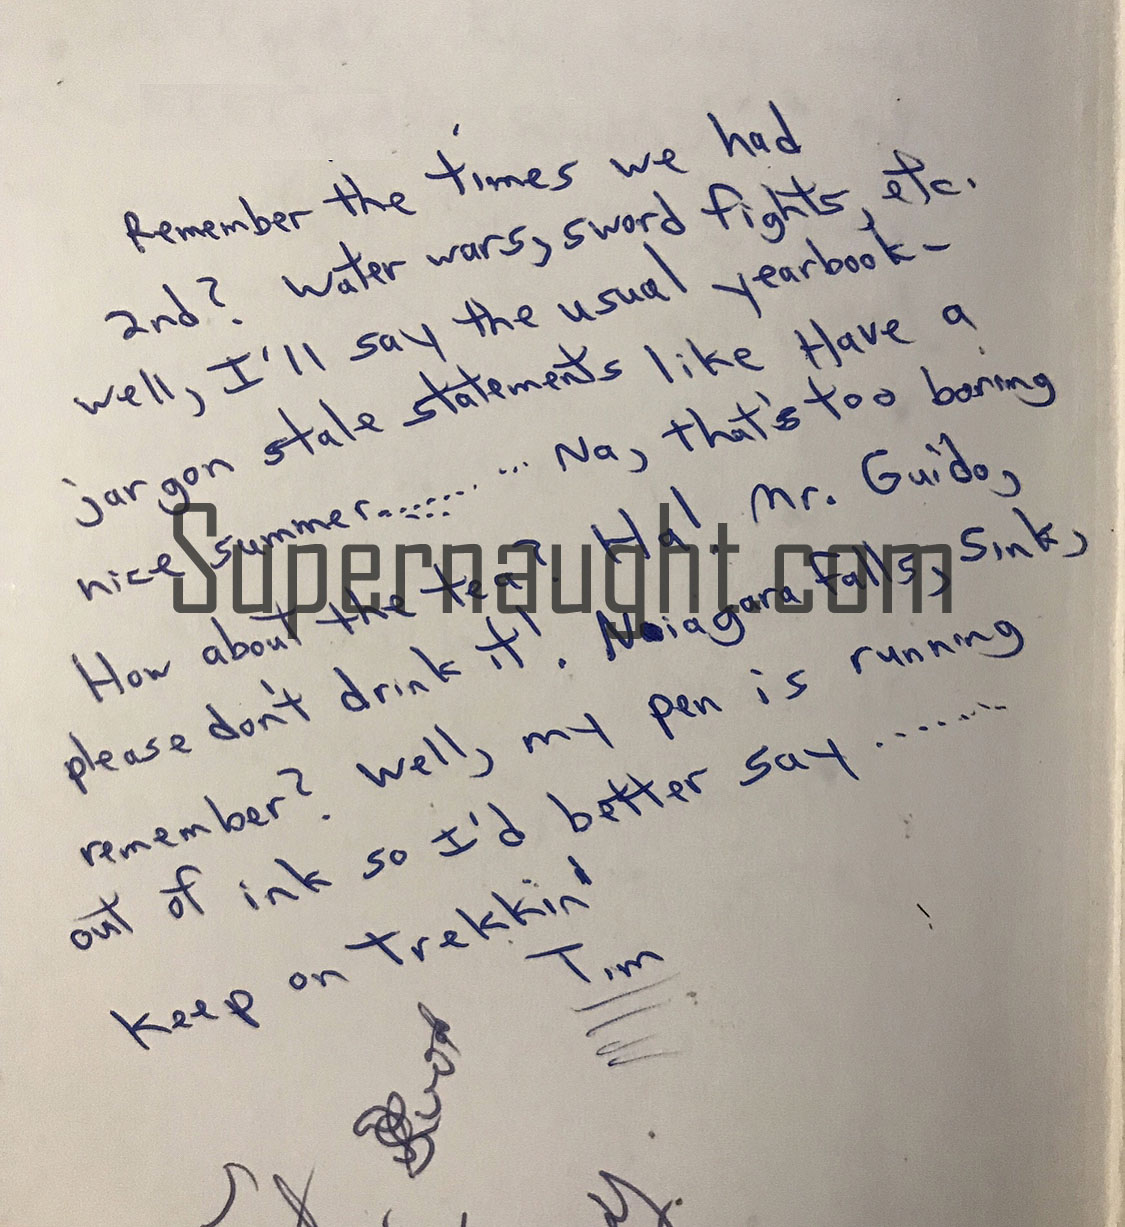 Remember the times we had
2nd? Water wars, sword fights, etc.
Well, I'll say the usual yearbook-
jargon stale statements like Have a
nice summer............ Na, that's too boring
How about the tea? Ha! Mr. Guido,
please don't drink it!. Niagara Falls, Sink,
remember? Well, my pen is running
out of ink so I'd better say ........
Keep on trekkin'
Tim
Supernaught.com